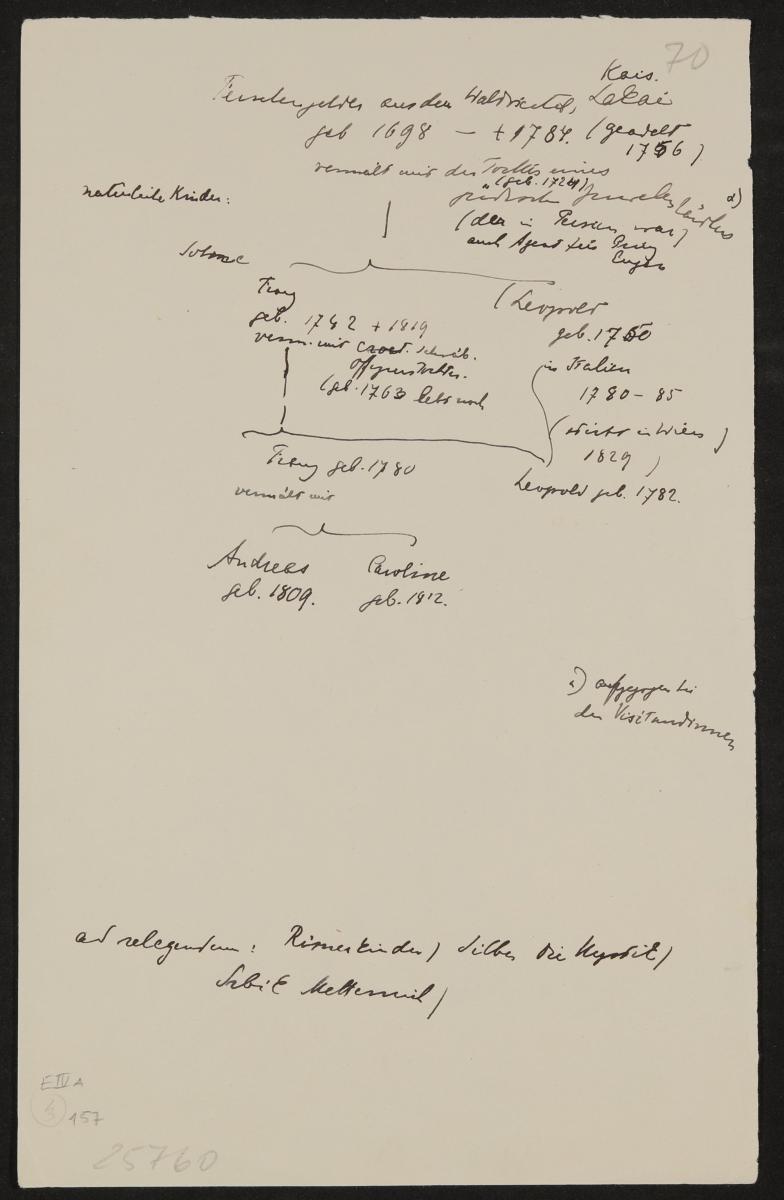 70
Kais.
aus dem Waldviertel, Lakai
geb 1698 — + 1784. (geadelt
1756)
vermält mit der Tochter eines
(geb. 1724)
a)
natürliche Kinder:
jüdischen Juwelenhändlers
(der in Persien war)
auch Agent für Prinz
Eugen
Söhne
Franz
(Leopold
geb. 1742 + 1819
geb. 1750
verm. mit croat. schwäb.
Offizierstochter.
(geb. 1763 lebt noch
in Italien
1780–85
(stirbt in Wien
1829)
Franz geb. 1780
Leopold geb. 1782.
vermält mit
Andreas
Caroline
geb. 1809.
geb. 1812.
a) aufgezogen bei
den Visitandinnen
ad relegendum: Römerkinder) Silber die Mystik)
Srbik Metternich)
E IV A
157
25760